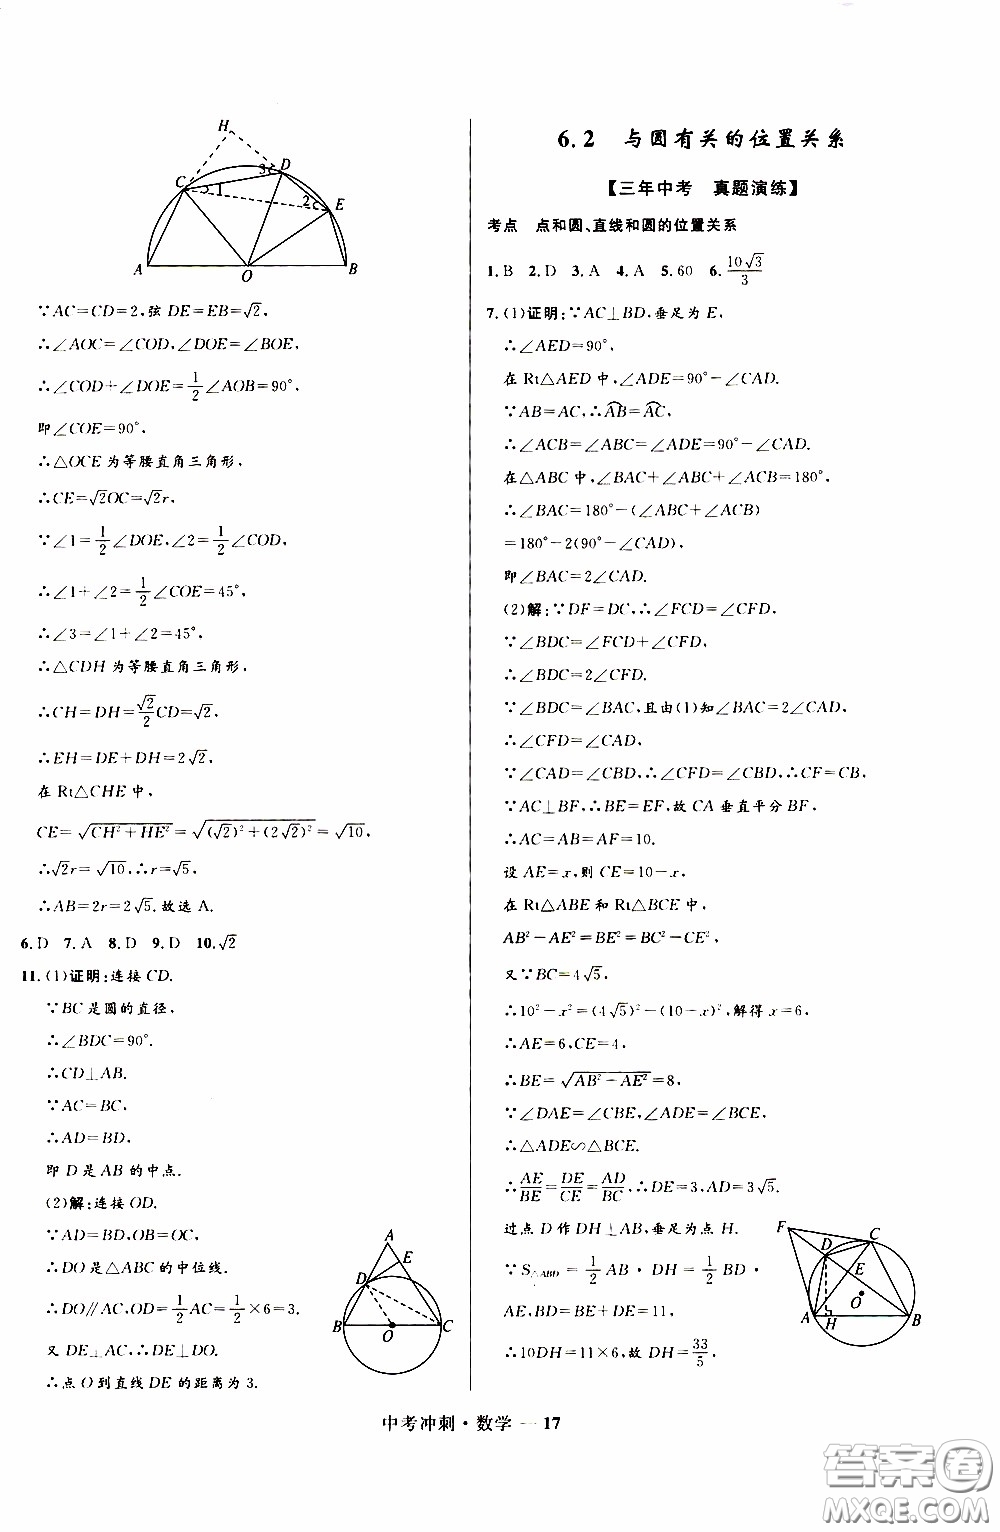 H
D
C
3
1
2
E
A
O
B
∵AC=CD=2,弦 DE=EB=√2,
∴∠AOC=∠COD,∠DOE=∠BOE,
∴∠COD+∠DOE=1/2∠AOB=90°,
即∠COE=90°,
∴△OCE 为等腰直角三角形,
∴CE=√2OC=√2r,
∵∠1=1/2∠DOE,∠2=1/2∠COD,
∴∠1+∠2=1/2∠COE=45°,
∴∠3=∠1+∠2=45°,
∴△CDH 为等腰直角三角形,
∴CH=DH=√2/2CD=√2,
∴EH=DE+DH=2√2,
在 Rt△CHE 中,
CE=√(CH²+HE²)=√((√2)²+(2√2)²)=√10,
∴√2r=√10,∴r=√5,
∴AB=2r=2√5.故选 A.
6.D 7.A 8.D 9.D 10.√2
11.(1)证明:连接 CD.
∵BC 是圆的直径,
∴∠BDC=90°.
∴CD⊥AB.
∵AC=BC,
∴AD=BD,
即 D 是 AB 的中点.
(2)解:连接 OD.
∵AD=BD,OB=OC,
∴DO 是△ABC 的中位线.
∴DO∥AC,OD=1/2AC=1/2×6=3.
又 DE⊥AC,∴DE⊥DO.
∴点 O 到直线 DE 的距离为 3.
A
E
D
B
O
C
6.2 与圆有关的位置关系
【三年中考 真题演练】
考点 点和圆、直线和圆的位置关系
1.B 2.D 3.A 4.A 5.60 6.10√3/3
7.(1)证明:∵AC⊥BD,垂足为 E,
∴∠AED=90°.
在 Rt△AED 中,∠ADE=90°−∠CAD.
∵AB=AC,∴A͡B=A͡C,
∴∠ACB=∠ABC=∠ADE=90°−∠CAD.
在△ABC 中,∠BAC+∠ABC+∠ACB=180°,
∴∠BAC=180°−(∠ABC+∠ACB)
=180°−2(90°−∠CAD),
即∠BAC=2∠CAD.
(2)解:∵DF=DC,∴∠FCD=∠CFD,
∵∠BDC=∠FCD+∠CFD,
∴∠BDC=2∠CFD.
∵∠BDC=∠BAC,且由(1)知∠BAC=2∠CAD,
∴∠CFD=∠CAD,
∵∠CAD=∠CBD,∴∠CFD=∠CBD,∴CF=CB,
∵AC⊥BF,∴BE=EF,故 CA 垂直平分 BF,
∴AC=AB=AF=10.
设 AE=x,则 CE=10−x,
在 Rt△ABE 和 Rt△BCE 中,
AB²−AE²=BE²=BC²−CE²,
又∵BC=4√5,
∴10²−x²=(4√5)²−(10−x)²,解得 x=6,
∴AE=6,CE=4,
∴BE=√(AB²−AE²)=8,
∵∠DAE=∠CBE,∠ADE=∠BCE,
∴△ADE∽△BCE.
∴AE/BE=DE/CE=AD/BC,∴DE=3,AD=3√5.
过点 D 作 DH⊥AB,垂足为点 H.
∵S△ABD=1/2AB·DH=1/2BD·
AE,BD=BE+DE=11,
∴10DH=11×6,故 DH=33/5.
F
D
C
E
O
A
H
B
中考冲刺·数学 — 17
答案圈
MXQE.COM